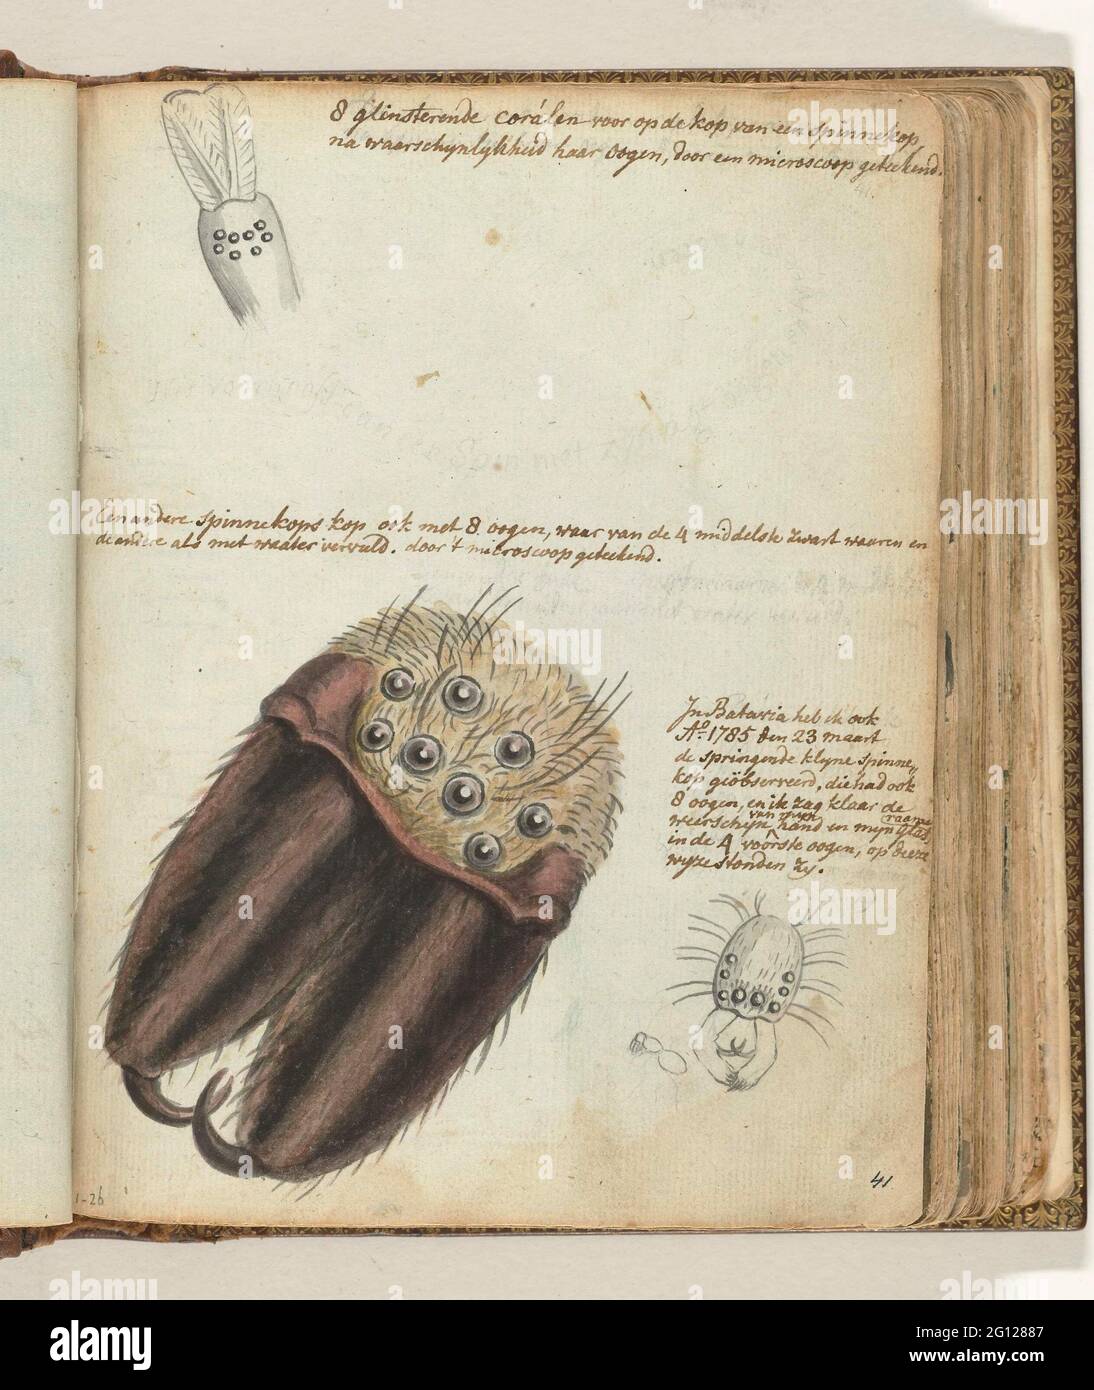 8 glinsterende corálen voor op de kop van een spinnekop,
na waarschynlykheid haar oogen, door een microscoop geteekend.
Een andere spinnekops kop, ook met 8 oogen, waar van de 4 middelste zwart waaren en
de andere als met waater vervuld. door 't microscoop geteekend.
In Batavia heb ik ook
Aº 1785 den 23 maart
de springende kleyne spinne„
kop geöbserveerd, die had ook
8 oogen, en ik zag klaar de
weerschyn van myn hand en myn glas raame
in de 4 voorste oogen, op deeze
wyze stonden zy.
41
1-26
alamy
Image ID: 2G12887
www.alamy.com